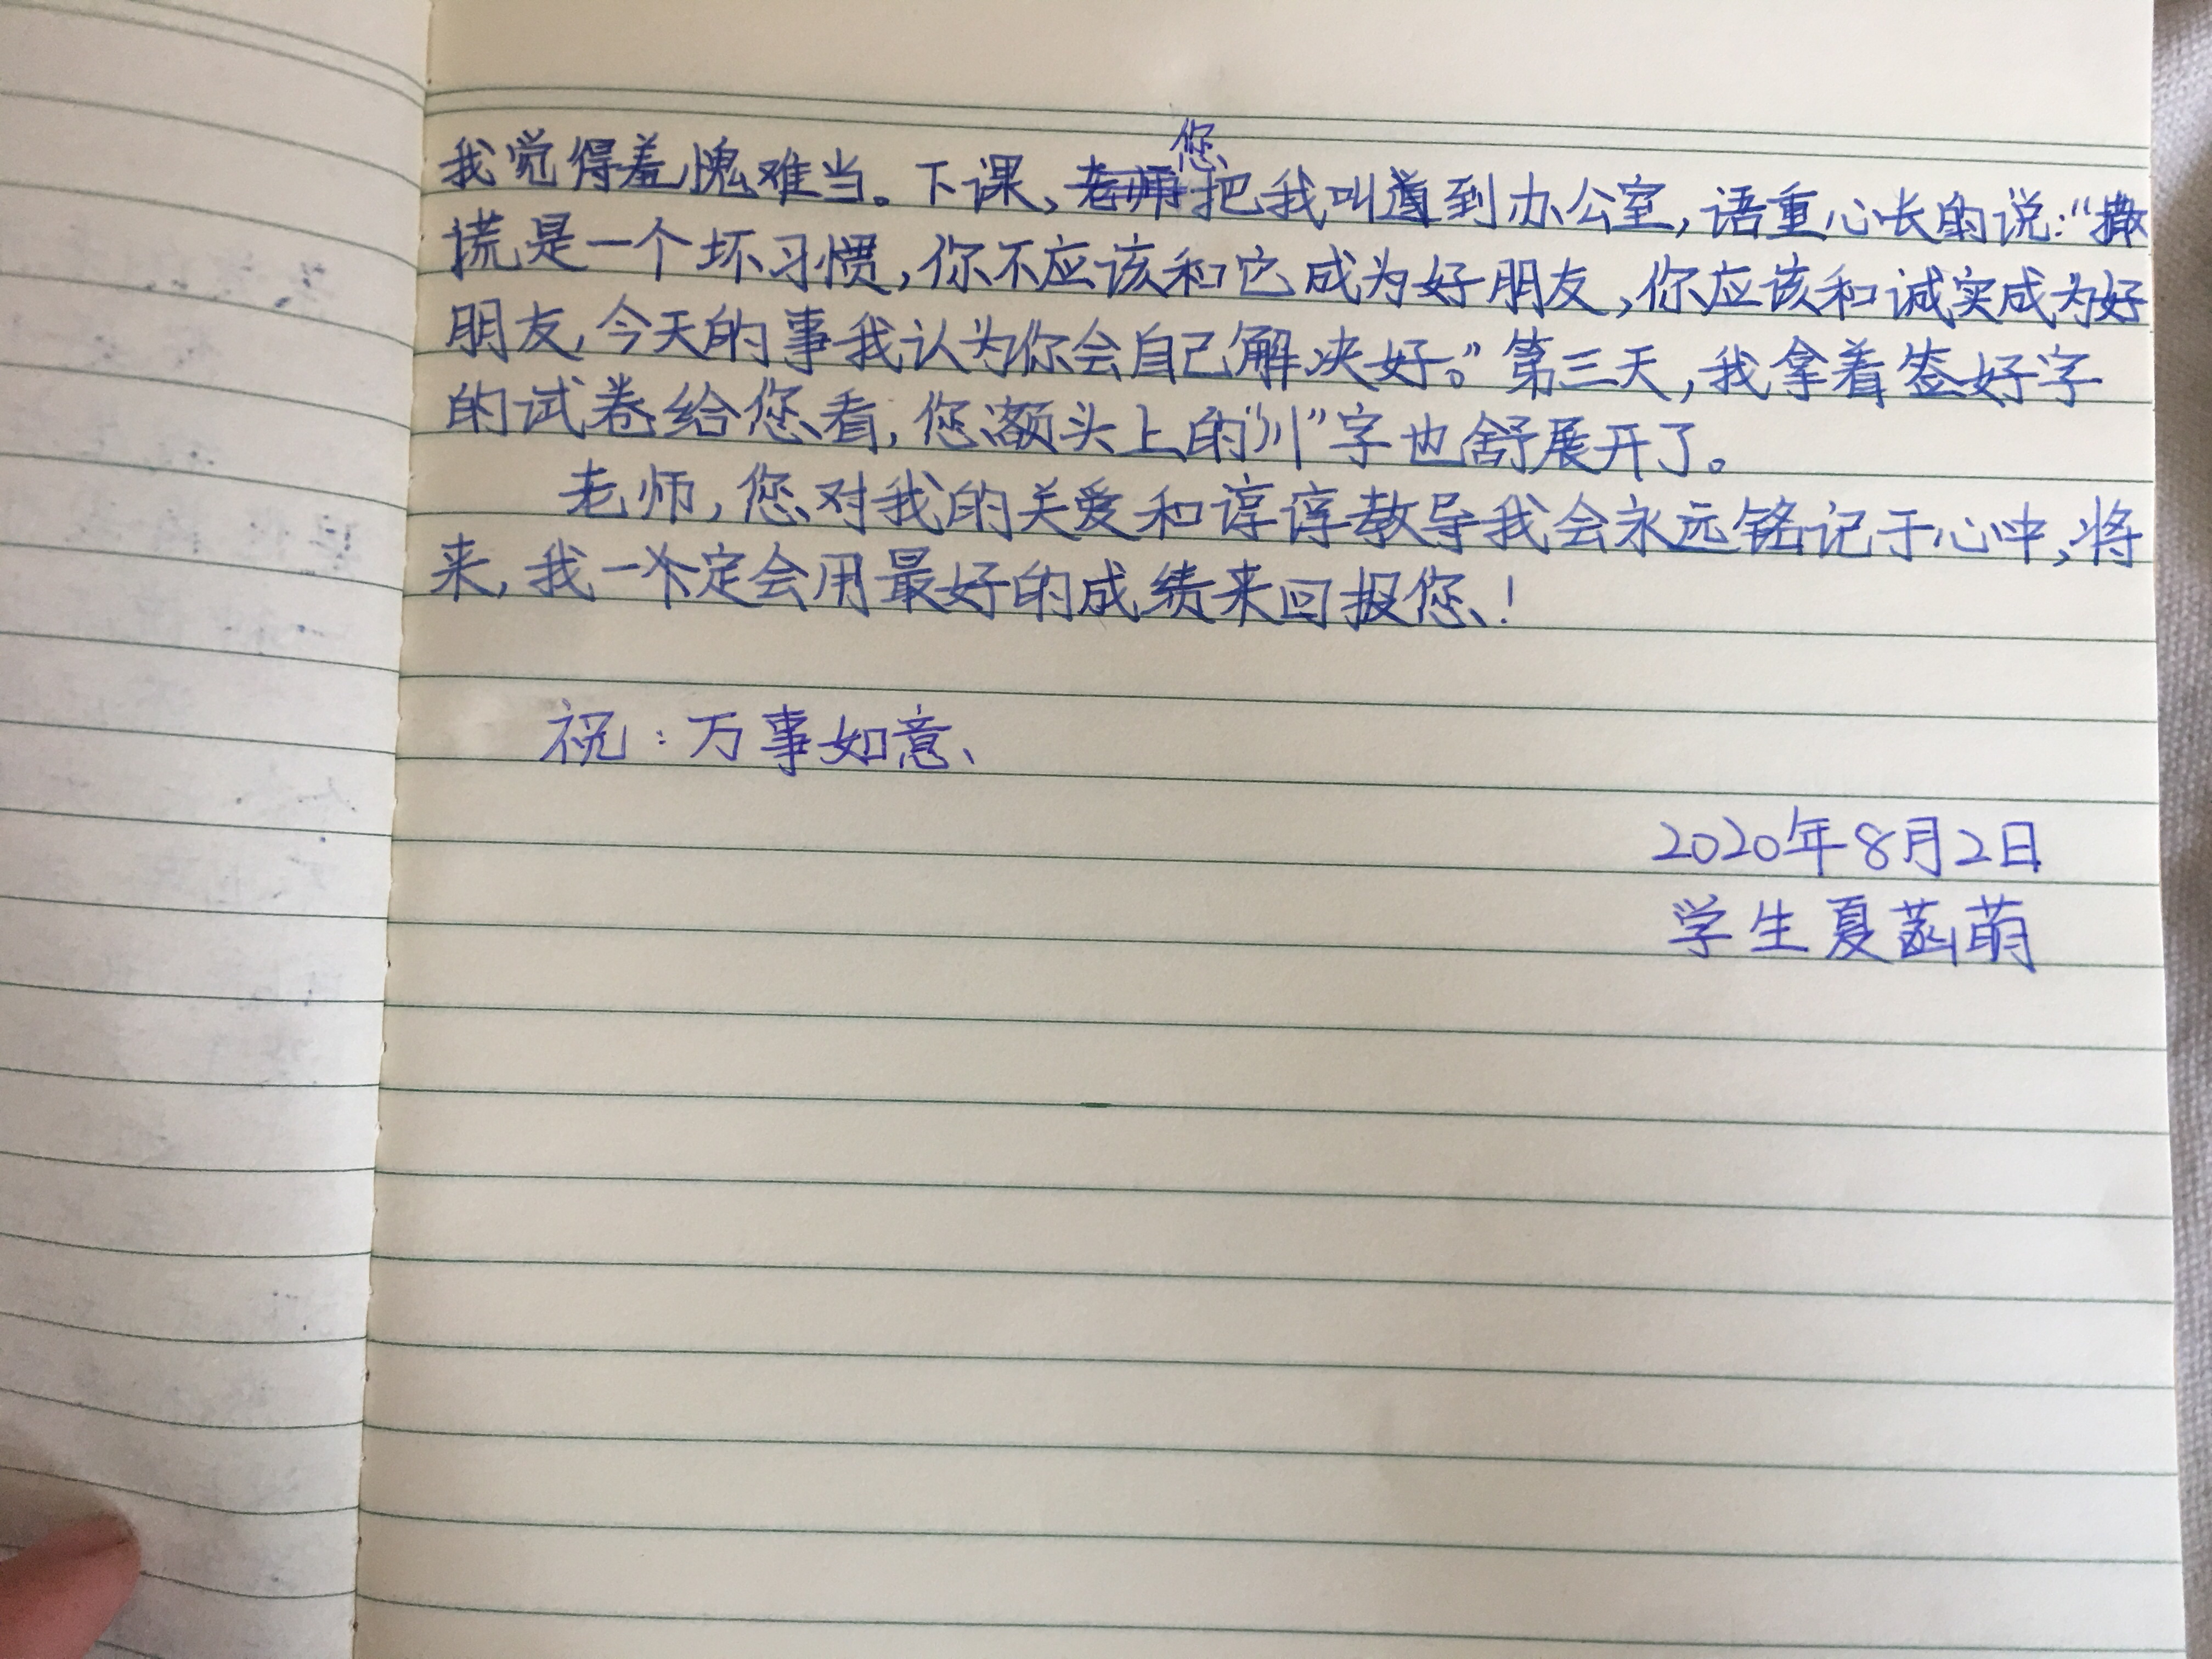 我觉得羞愧难当。下课、您把我叫到办公室,语重心长的说:“撒
谎是一个坏习惯,你不应该和它成为好朋友,你应该和诚实成为好
朋友,今天的事我认为你会自己解决好。”第三天,我拿着签好字
的试卷给您看,您额头上的“川”字也舒展开了。
老师,您对我的关爱和谆谆教导我会永远铭记于心中,将
来,我一定会用最好的成绩来回报您、!
祝:万事如意、
2020年8月2日
学生夏菡萌